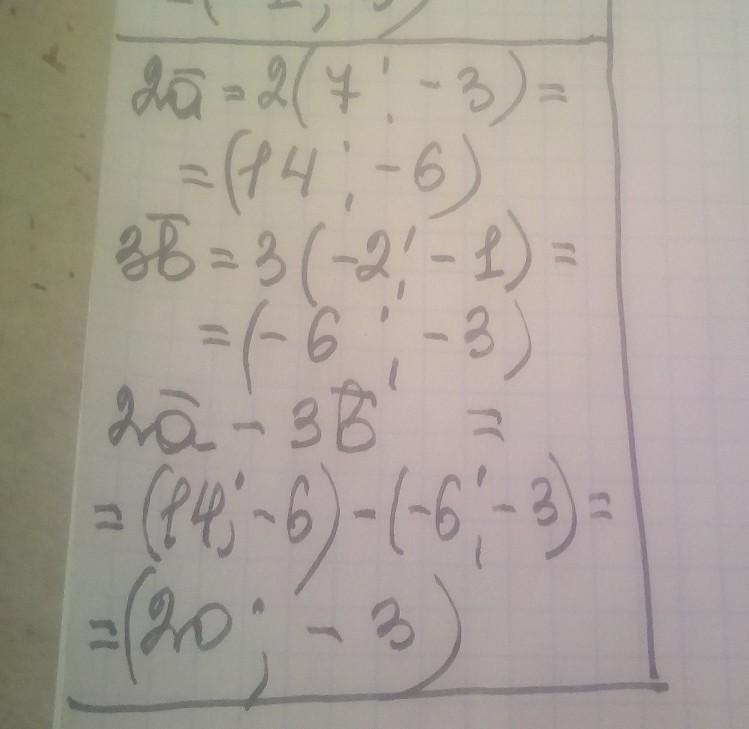 2a̅ = 2(7; -3) =
= (14; -6)
3b̅ = 3(-2; -1) =
= (-6; -3)
2a̅ - 3b̅ =
= (14; -6) - (-6; -3) =
= (20; -3)